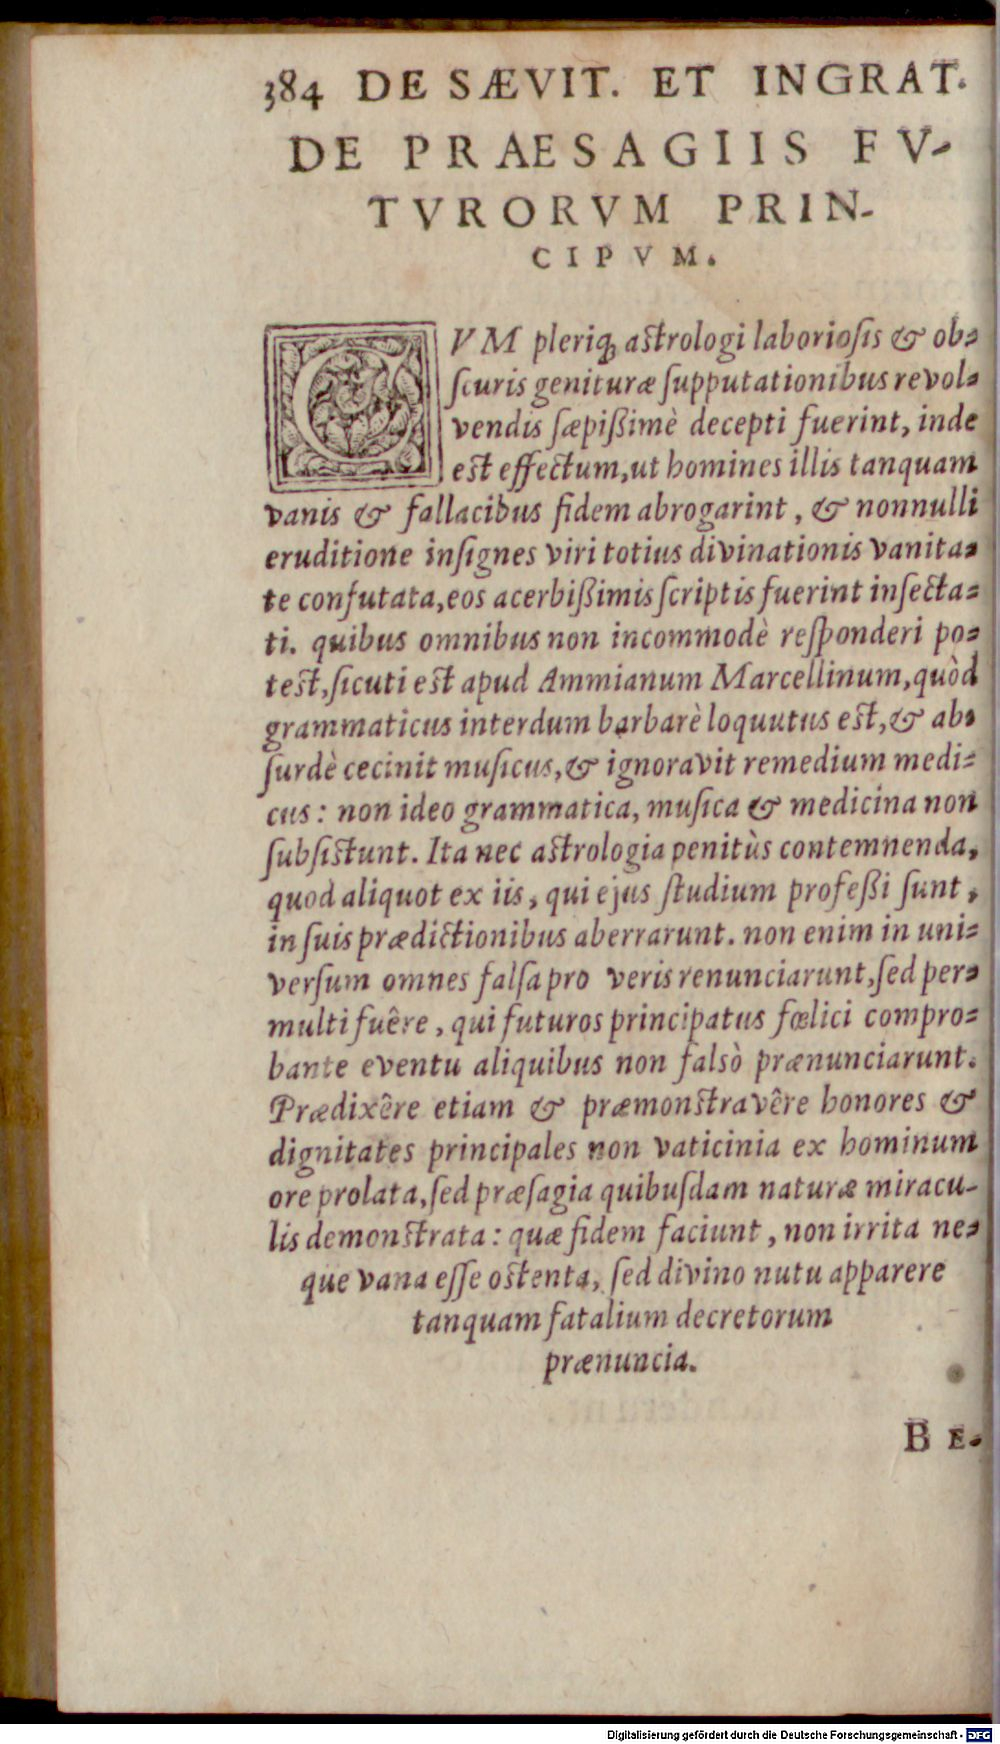 384 DE SÆVIT. ET INGRAT.
DE PRAESAGIIS FV-
TVRORVM PRIN-
CIPVM.
CVM pleriq; astrologi laboriosis & ob-
scuris genituræ supputationibus revol-
vendis sæpißimè decepti fuerint, inde
est effectum, ut homines illis tanquam
vanis & fallacibus fidem abrogarint, & nonnulli
eruditione insignes viri totius divinationis vanita-
te confutata, eos acerbißimis scriptis fuerint insecta-
ti. quibus omnibus non incommodè responderi po-
test, sicuti est apud Ammianum Marcellinum, quòd
grammaticus interdum barbarè loquutus est, & ab-
surdè cecinit musicus, & ignoravit remedium medi-
cus: non ideo grammatica, musica & medicina non
subsistunt. Ita nec astrologia penitùs contemnenda,
quod aliquot ex iis, qui ejus studium profeßi sunt,
in suis prædictionibus aberrarunt. non enim in uni-
versum omnes falsa pro veris renunciarunt, sed per-
multi fuêre, qui futuros principatus fœlici compro-
bante eventu aliquibus non falsò prænunciarunt.
Prædixêre etiam & præmonstravêre honores &
dignitates principales non vaticinia ex hominum
ore prolata, sed præsagia quibusdam naturæ miracu-
lis demonstrata: quæ fidem faciunt, non irrita ne-
que vana esse ostenta, sed divino nutu apparere
tanquam fatalium decretorum
prænuncia.
BE-
Digitalisierung gefördert durch die Deutsche Forschungsgemeinschaft - DFG